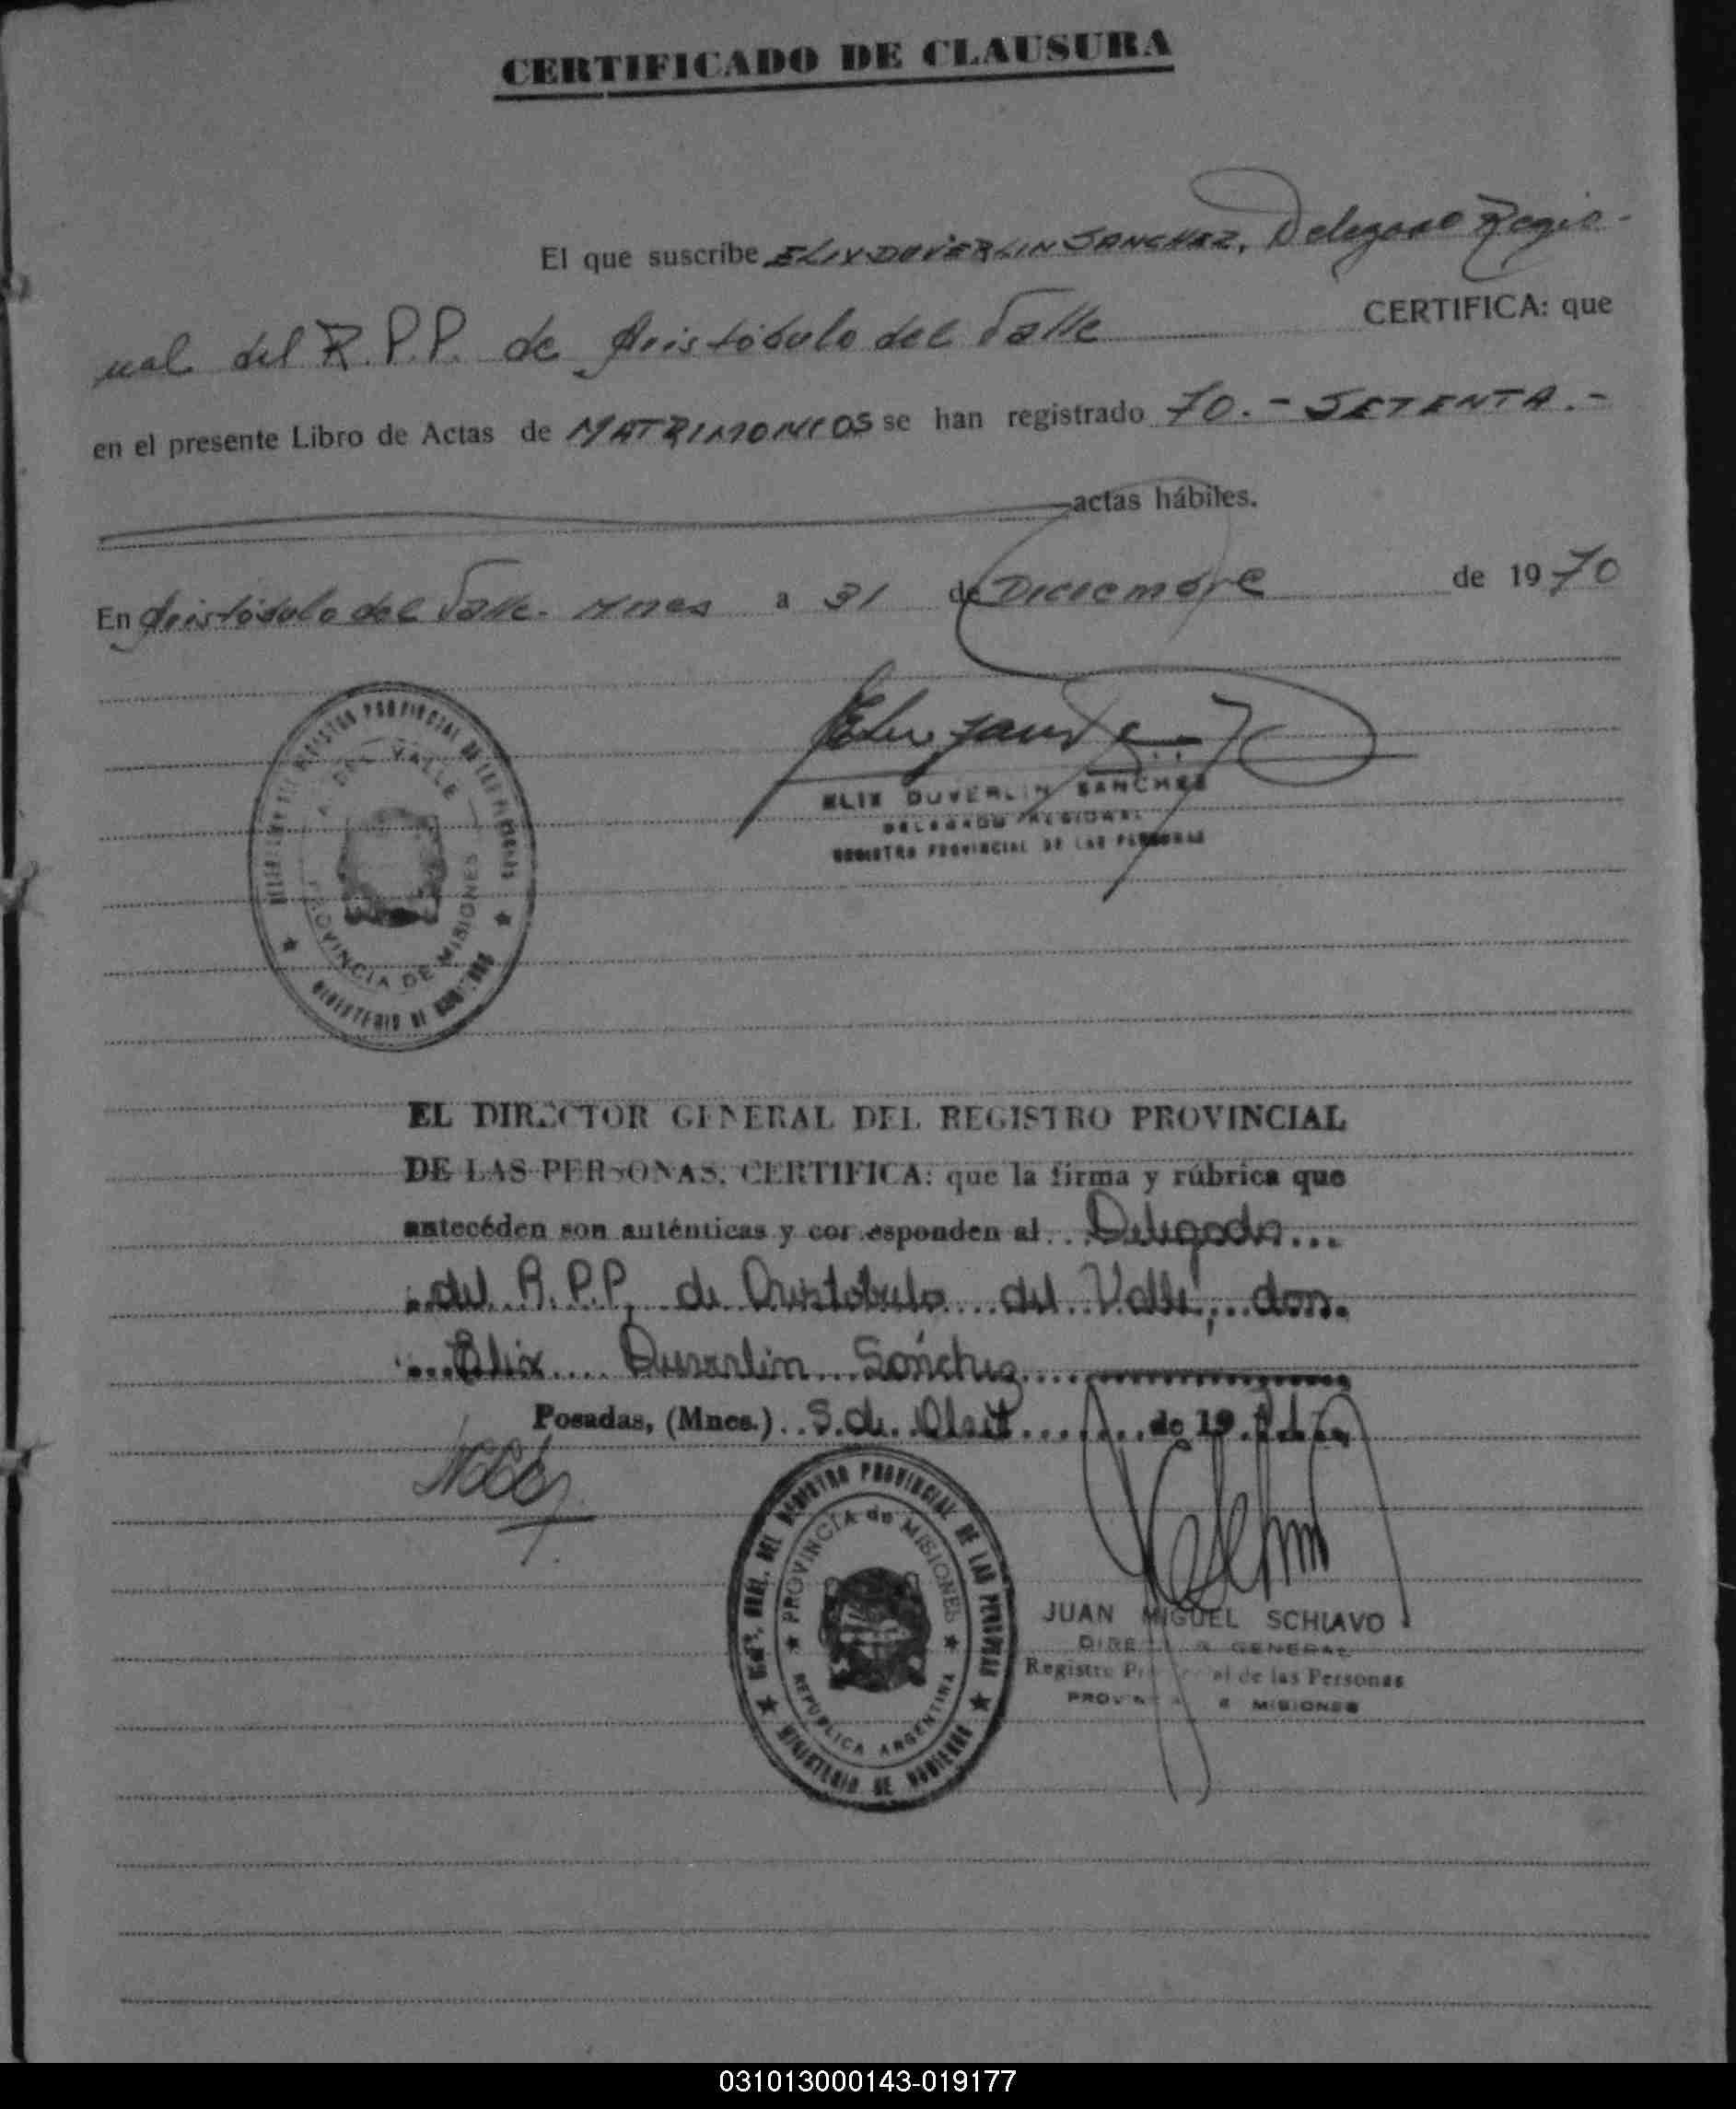 CERTIFICADO DE CLAUSURA
El que suscribe ELIX DUVERLIN SANCHEZ, Delegado Regio-
nal del R.P.P. de Aristóbulo del Valle CERTIFICA: que
en el presente Libro de Actas de MATRIMONIOS se han registrado 70.- SETENTA.-
actas hábiles.
En Aristóbulo del Valle. Mnes a 31 de Diciembre de 1970
REGISTRO PROVINCIAL DE LAS PERSONAS
A. DEL VALLE
PROVINCIA DE MISIONES
MINISTERIO DE GOBIERNO
ELIX DUVERLIN SANCHEZ
DELEGADO REGIONAL
REGISTRO PROVINCIAL DE LAS PERSONAS
EL DIRECTOR GENERAL DEL REGISTRO PROVINCIAL
DE LAS PERSONAS, CERTIFICA: que la firma y rúbrica que
antecéden son auténticas y corresponden al Delegado
del R.P.P. de Aristobulo del Valle, don
Elix Duverlin Sánchez
Posadas, (Mnes.) 5 de de 19
DEL REGISTRO PROVINCIAL DE LAS PERSONAS
PROVINCIA de MISIONES
REPUBLICA ARGENTINA
MINISTERIO DE GOBIERNO
JUAN MIGUEL SCHIAVO
DIRECTOR GENERAL
Registro Provincial de las Personas
PROVINCIA DE MISIONES
031013000143-019177